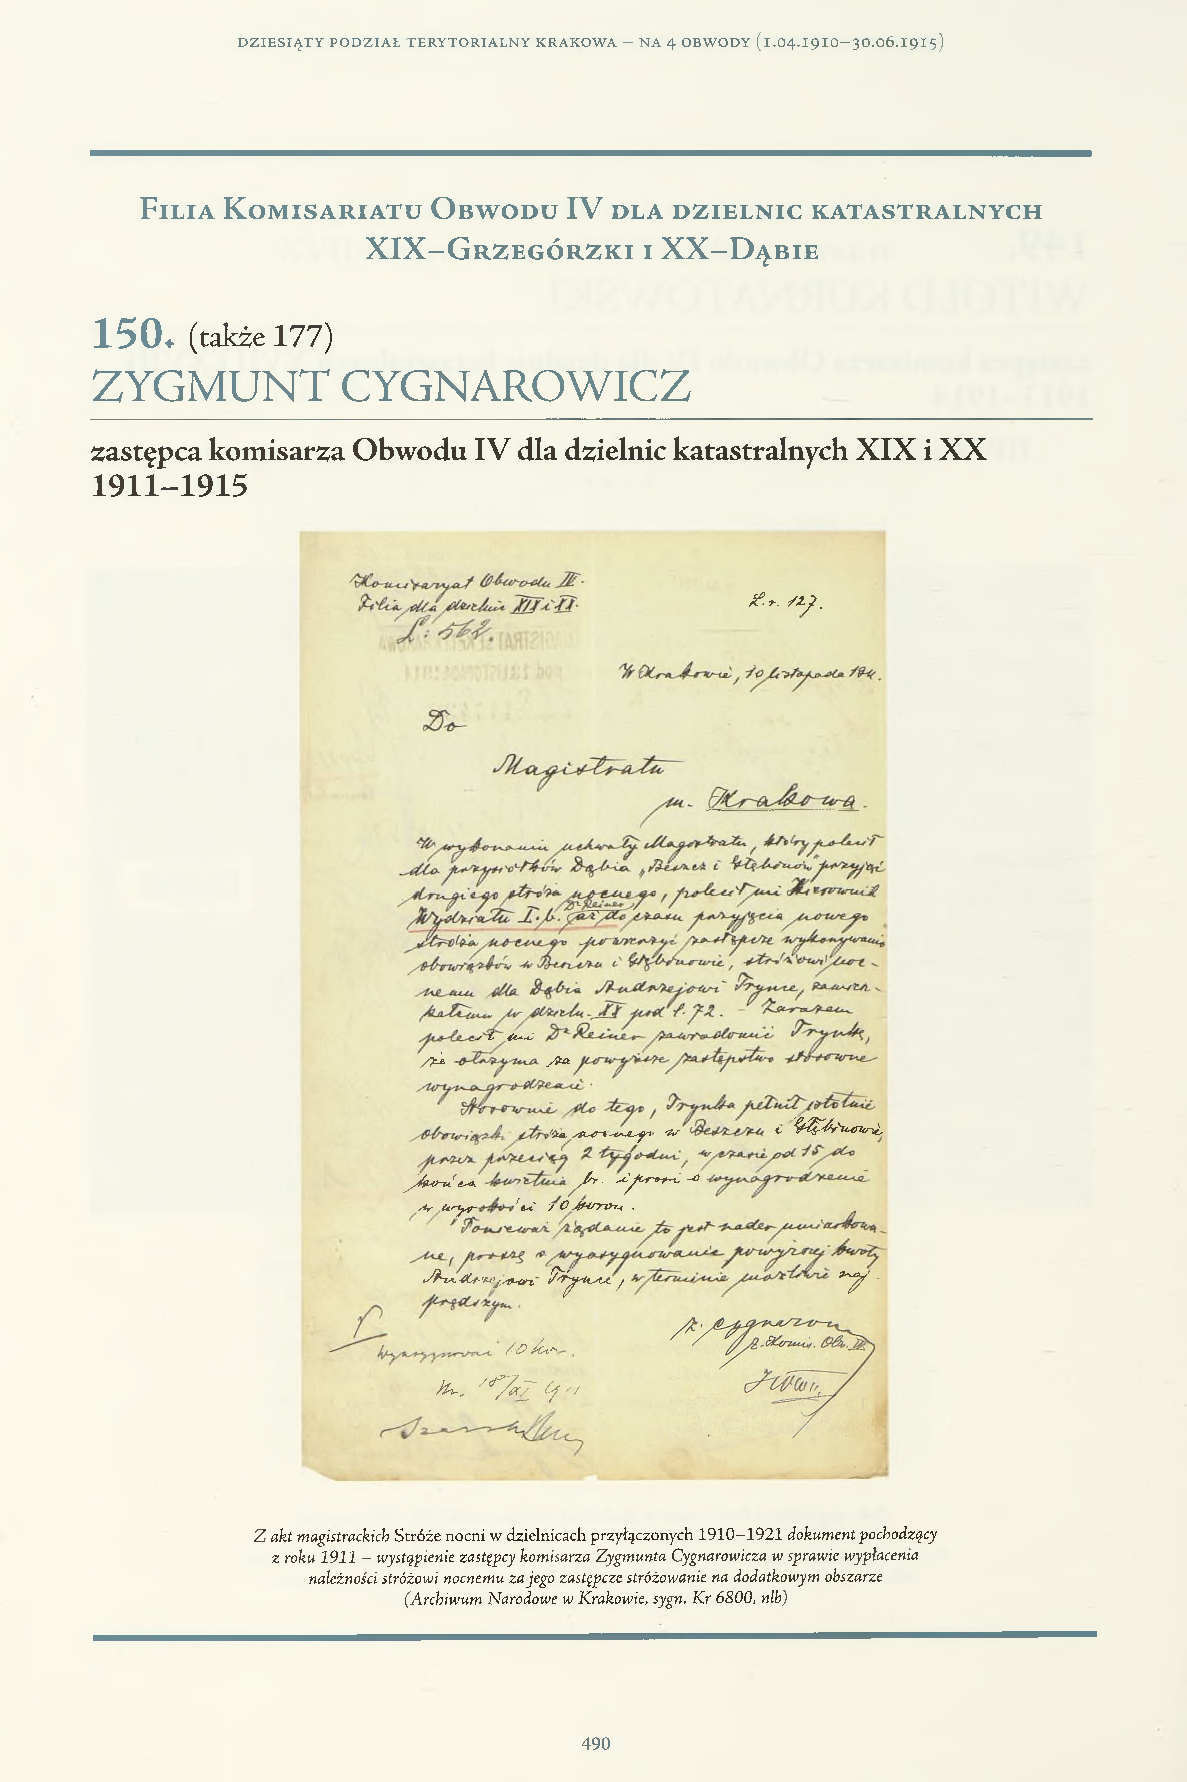 DZIESIĄTY PODZIAŁ TERYTORIALNY KRAKOWA – NA 4 OBWODY (1.04.1910–30.06.1915)
FILIA KOMISARIATU OBWODU IV DLA DZIELNIC KATASTRALNYCH
XIX–GRZEGÓRZKI I XX–DĄBIE
150. (także 177)
ZYGMUNT CYGNAROWICZ
zastępca komisarza Obwodu IV dla dzielnic katastralnych XIX i XX
1911–1915
Komisaryat Obwodu IV.
Filia dla dzielnic XIX i XX.
L: 562.
L. r. 127.
W Krakowie, 10 listopada 1911.
Do
Magistratu
m. Krakowa.
W wykonaniu uchwały Magistratu, który polecił
dla przysiółków Dąbia „Beszcz i Głębinów" przyjąć
drugiego stróża nocnego, polecił mi Kierownik
Wydziału I.b. Dr Reiner, aż do czasu przyjęcia nowego
stróża nocnego powierzyć zastępcze wykonywanie
obowiązków w Beszczu i Głębinowie, stróżowi noc-
nemu dla Dąbia Andrzejowi Trynce, zamiesz-
kałemu w dzieln. XX pod l. 72. – Zarazem
polecił mi Dr Reiner zawiadomić Trynkę,
że otrzyma za powyższe zastępstwo stosowne
wynagrodzenie.
Stosownie do tego, Trynka pełnił istotnie
obowiązki stróża nocnego w Beszczu i Głębinowie,
przez przeciąg 2 tygodni, w czasie od 15 do
końca kwietnia br. i prosi o wynagrodzenie
w wysokości 10 koron.
Ponieważ żądanie to jest nader umiarkowa-
ne, proszę o wyasygnowanie powyższej kwoty
Andrzejowi Trynce, w terminie możliwie naj-
prędszym.
Z. Cygnarow
z. Komis. Obw. IV.
Wyasygnować 10 kor.
Kr. 18/XI 1911
Z akt magistrackich Stróże nocni w dzielnicach przyłączonych 1910–1921 dokument pochodzący
z roku 1911 – wystąpienie zastępcy komisarza Zygmunta Cygnarowicza w sprawie wypłacenia
należności stróżowi nocnemu za jego zastępcze stróżowanie na dodatkowym obszarze
(Archiwum Narodowe w Krakowie, sygn. Kr 6800, nlb)
490